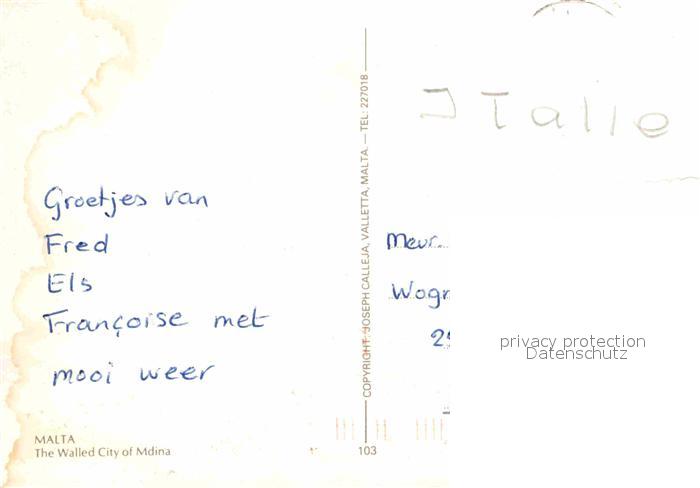 Groetjes van
Fred
Els
Françoise met
mooi weer
MALTA
The Walled City of Mdina
COPYRIGHT: JOSEPH CALLEJA, VALLETTA, MALTA. — TEL: 227018
103
ITalie
Mevr.
Wogr
privacy protection
Datenschutz